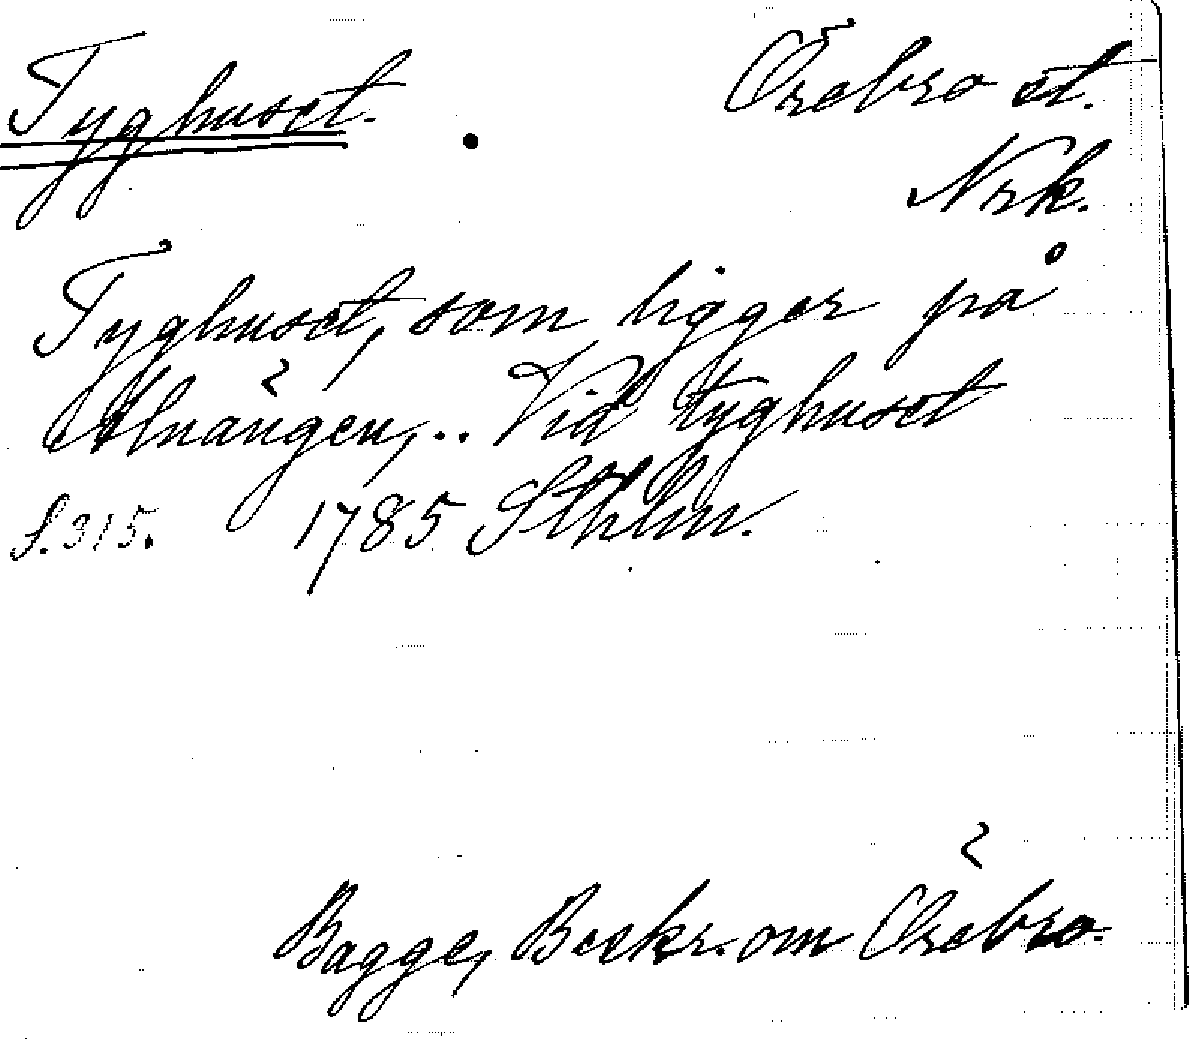 Tyghuset. Örebro st.
Nrk.
Tyghuset, som ligger på
Alnängen,.. Vid tyghuset
S. 315. 1785 Sthlm.
Bagge, Beskr. om Örebro.